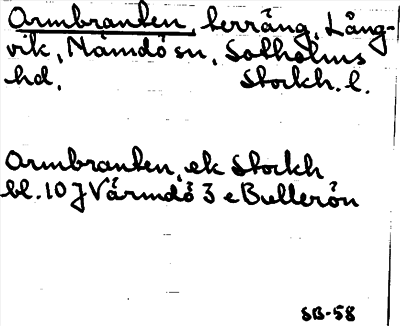 Ormbranten, terräng, Lång-
vik, Nämdö sn, Sotholms
hd. Stockh. l.
Ormbranten, ek Stockh
bl. 10 J Värmdö 3 e Bullerön
SB-58